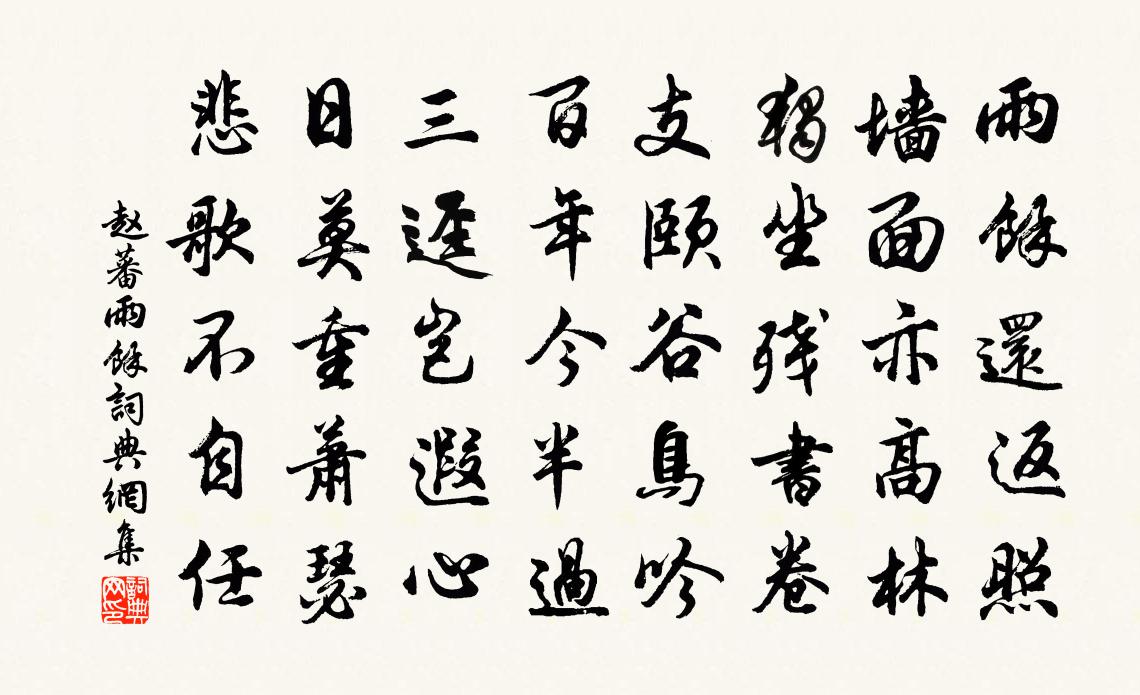 雨餘還返照
墙面亦高林
獨坐残書卷
支頤谷鳥吟
百年今半過
三逕豈遐心
日莫重蕭瑟
悲歌不自任
赵蕃雨餘詞典網集
詞典网印